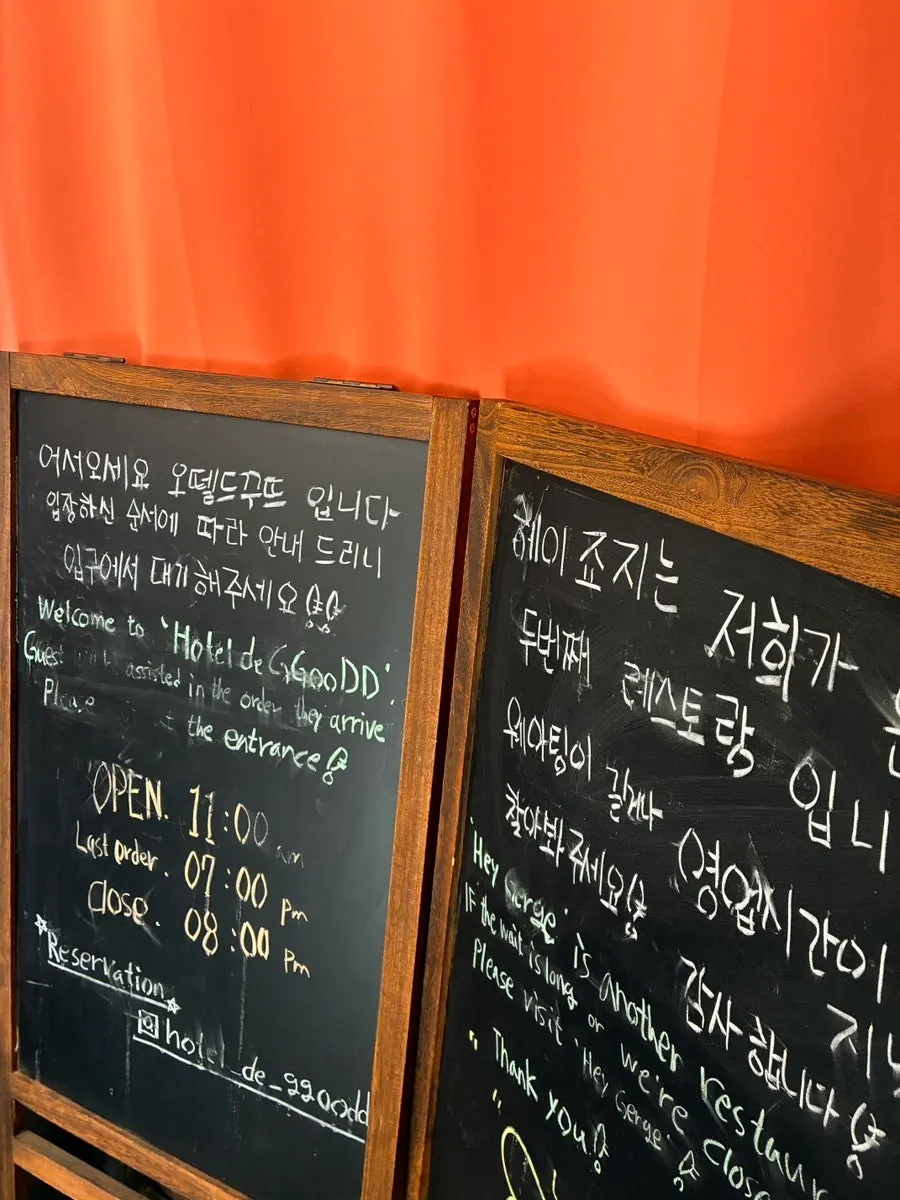 어서오세요 오뗄드꾸뜨 입니다
입장하신 순서에 따라 안내 드리니
입구에서 대기해주세요!!
Welcome to 'Hotel de GGooDD'
Guest will be assisted in the order they arrive
Please the entrance!
OPEN. 11:00 am
Last order. 07:00 pm
Close. 08:00 pm
Reservation
hotel_de_ggoodd
헤이죠지는 저희가
두번째 레스토랑 입니
웨이팅이 길거나 영업시간이 지
찾아봐주세요! 감사합니다!
'Hey Gerge' is another restaur
If the wait is long or we're close
Please visit 'Hey Gerge'
" Thank you! "